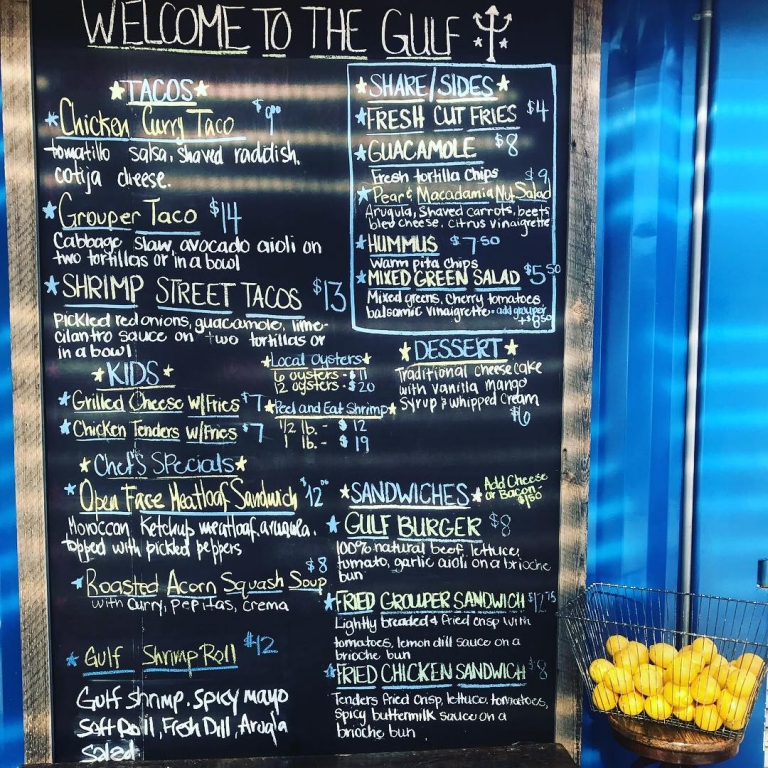 WELCOME TO THE GULF
TACOS
Chicken Curry Taco $9.00
tomatillo salsa, shaved raddish,
cotija cheese.
Grouper Taco $14
Cabbage slaw, avocado aioli on
two tortillas or in a bowl
SHRIMP STREET TACOS $13
pickled red onions, guacamole, lime-
cilantro sauce on two tortillas or
in a bowl
SHARE/SIDES
FRESH CUT FRIES $4
GUACAMOLE $8
Fresh tortilla chips
Pear & Macadamia Nut Salad $9
Arugula, Shaved carrots, beets
bleu cheese, citrus vinaigrette
HUMMUS $7.50
warm pita chips
MIXED GREEN SALAD $5.50
Mixed greens, cherry tomatoes,
balsamic vinaigrette. add grouper
+$8.50
KIDS
Grilled Cheese w/Fries $7
Chicken Tenders w/Fries $7
Local Oysters
6 oysters - $11
12 oysters - $20
Peel and Eat Shrimp
1/2 lb. - $12
1 lb. - $19
DESSERT
Traditional cheesecake
with vanilla mango
syrup & whipped cream
$6
Chef's Specials
Open Face Meatloaf Sandwich $12
Moroccan Ketchup meatloaf, arugula,
topped with pickled peppers
Roasted Acorn Squash Soup $8
with Curry, Pepitas, crema
Gulf Shrimp Roll $12
Gulf shrimp, spicy mayo
Soft Roll, Fresh Dill, Arugla
Salad
SANDWICHES
Add Cheese
or Bacon -
$1.50
GULF BURGER $8
100% natural beef, lettuce,
tomato, garlic aioli on a brioche
bun
FRIED GROUPER SANDWICH $12.75
Lightly breaded & fried crisp with
tomatoes, lemon dill sauce on a
brioche bun
FRIED CHICKEN SANDWICH $8
Tenders fried crisp, lettuce, tomatoes,
spicy buttermilk sauce on a
brioche bun